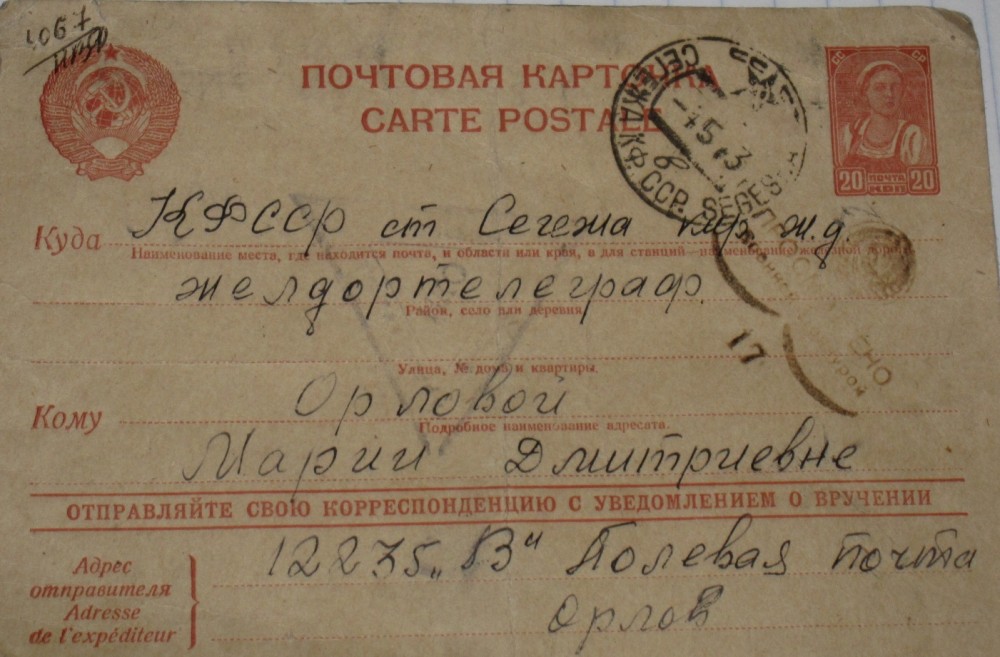 ПОЧТОВАЯ КАРТОЧКА
CARTE POSTALE
СС СР
20 ПОЧТА 20
КОП
СЕГЕЖА КФ. ССР. SEGES
Куда КФССР ст Сегежа кир ж.д.
Наименование места, где находится почта, и области или края, а для станций наименование железной дороги
желдортелеграф
Район, село или деревня
17
Улица, № дома и квартиры.
Кому Орловой
Подробное наименование адресата.
Марии Дмитриевне
ОТПРАВЛЯЙТЕ СВОЮ КОРРЕСПОНДЕНЦИЮ С УВЕДОМЛЕНИЕМ О ВРУЧЕНИИ
Адрес отправителя
Adresse de l'expéditeur
12235 „В" Полевая почта
Орлов